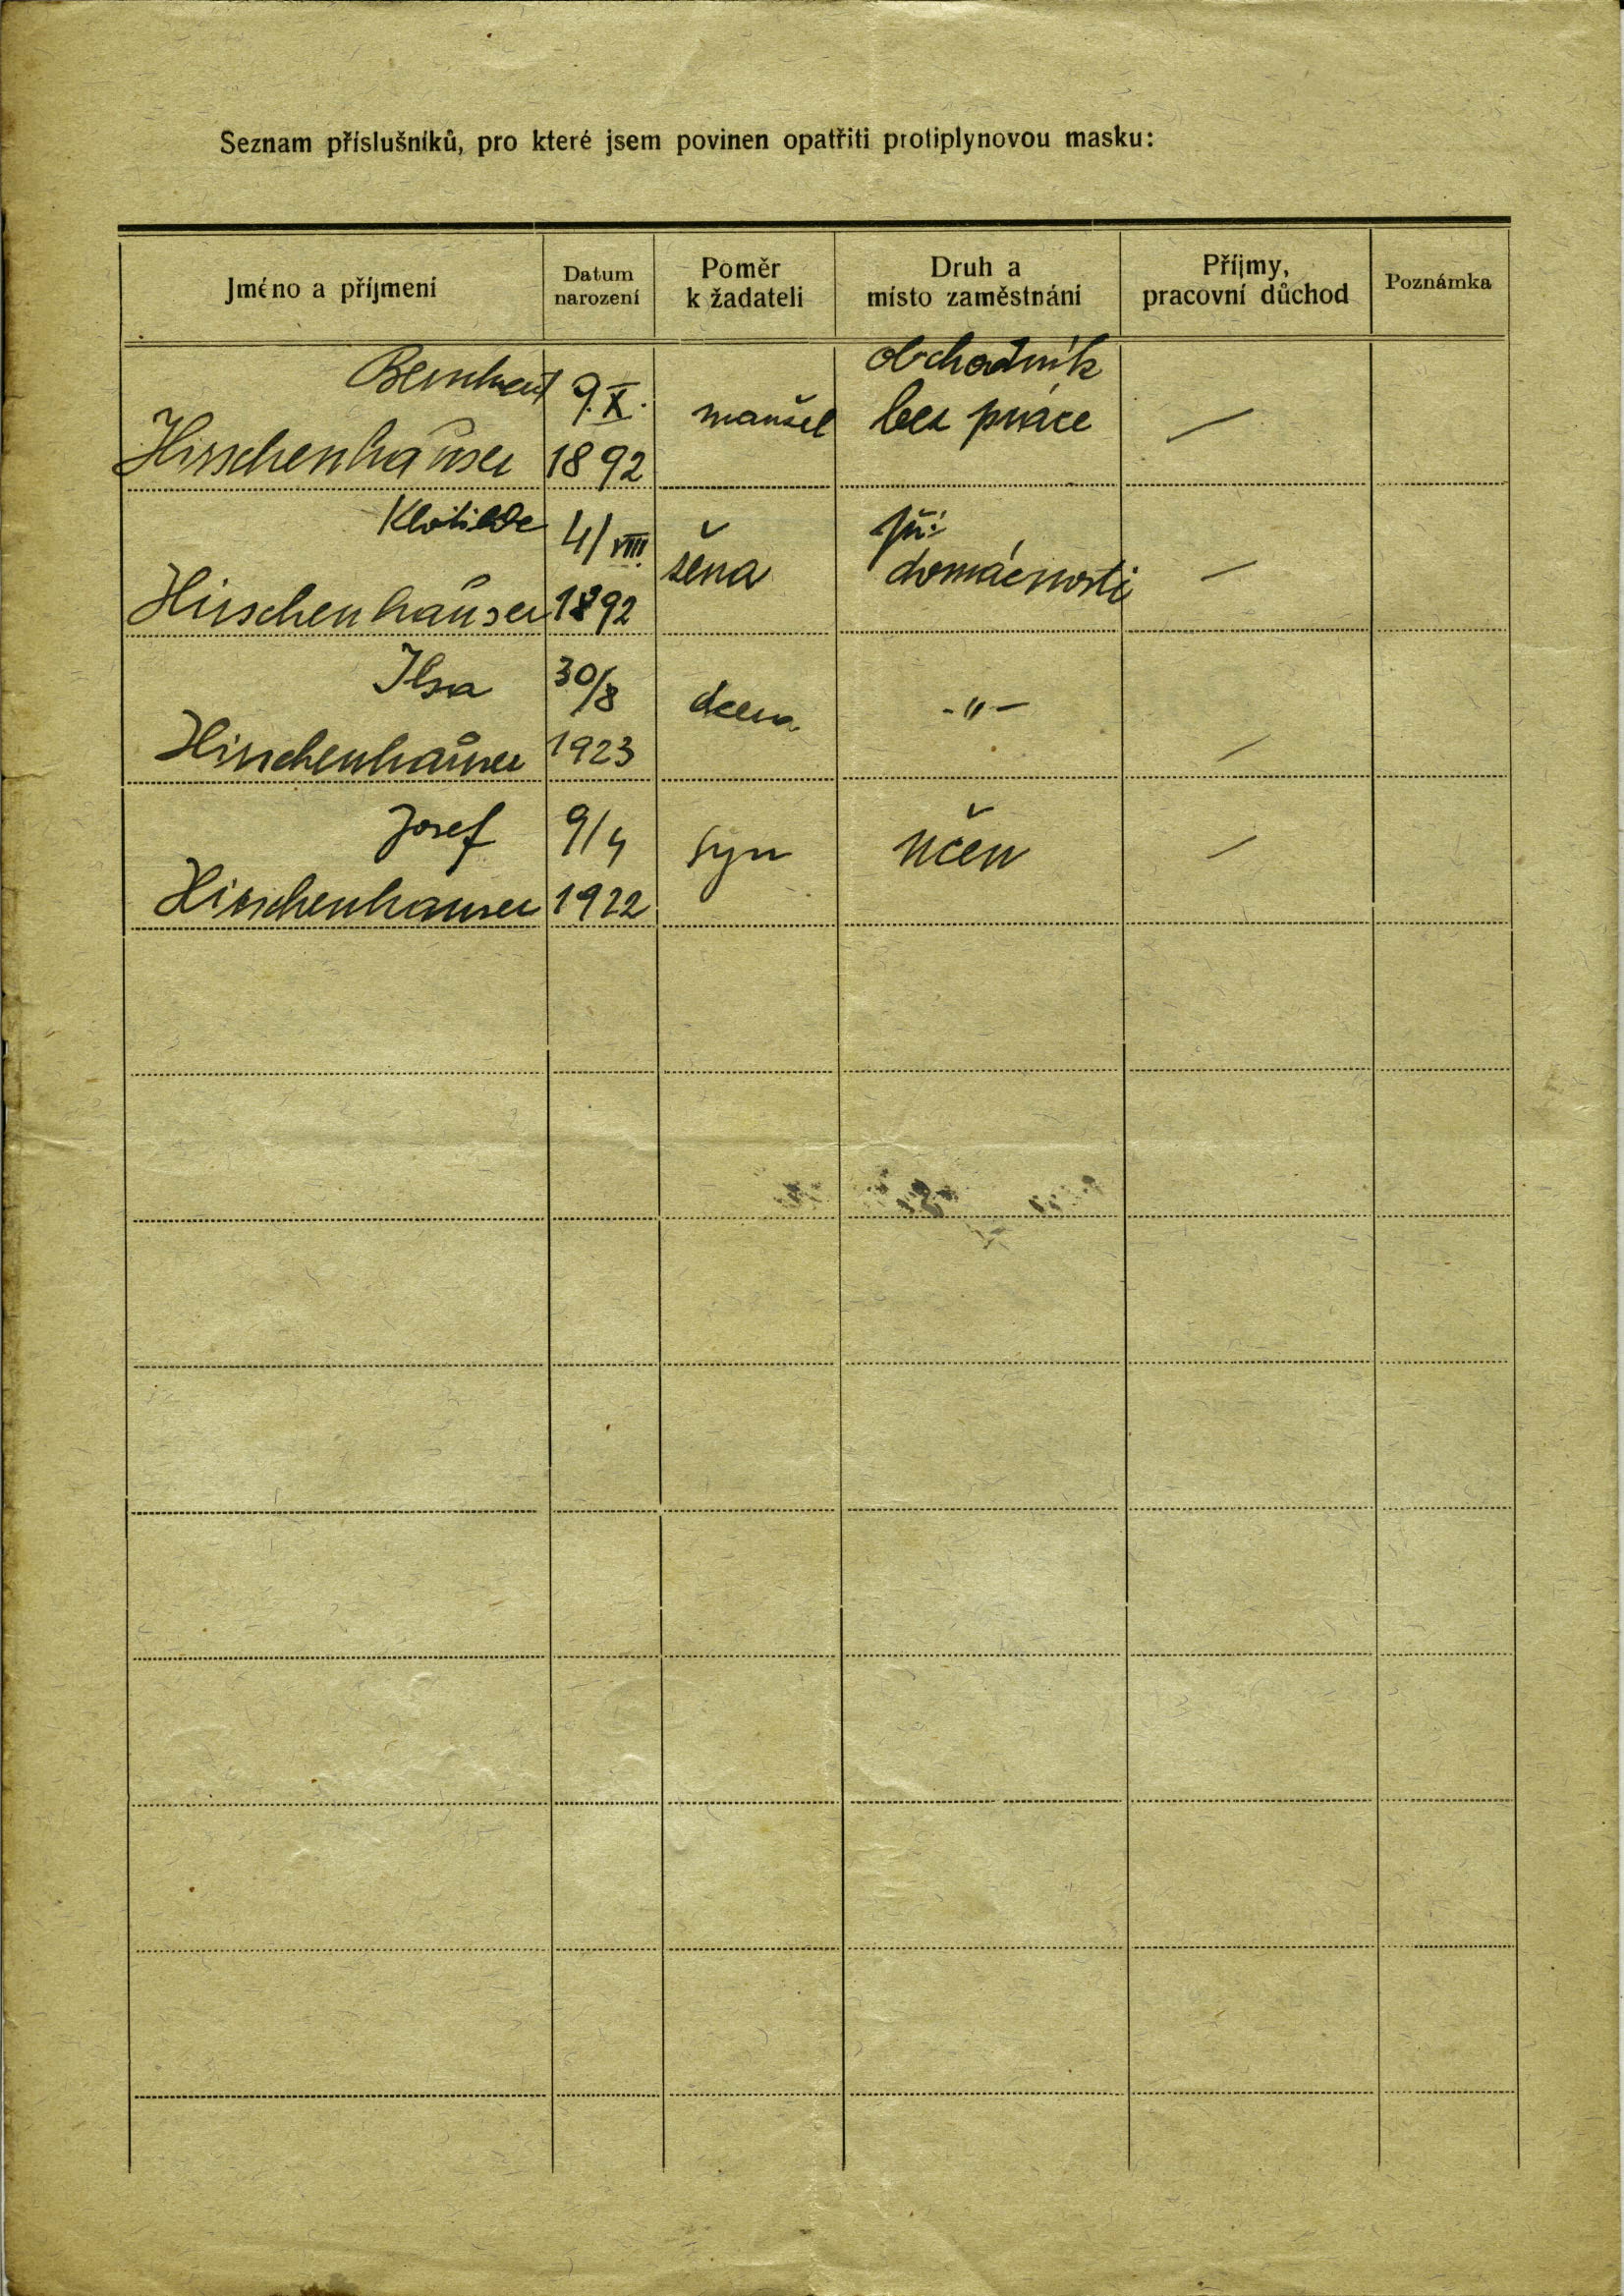 Seznam příslušníků, pro které jsem povinen opatřiti protiplynovou masku:
Jméno a příjmení
Datum
narození
Poměr
k žadateli
Druh a
místo zaměstnání
Příjmy,
pracovní důchod
Poznámka
Bernhard
Hirschenhauser
9.X.
1892
manžel
obchodník
bez práce
—
Klotilde
Hirschenhauser
4/VIII.
1892
žena
při
domácnosti
—
Ilsa
Hirschenhauser
30/8
1923
dcera
-"-
—
Josef
Hirschenhauser
9/4
1922
syn
učen
—